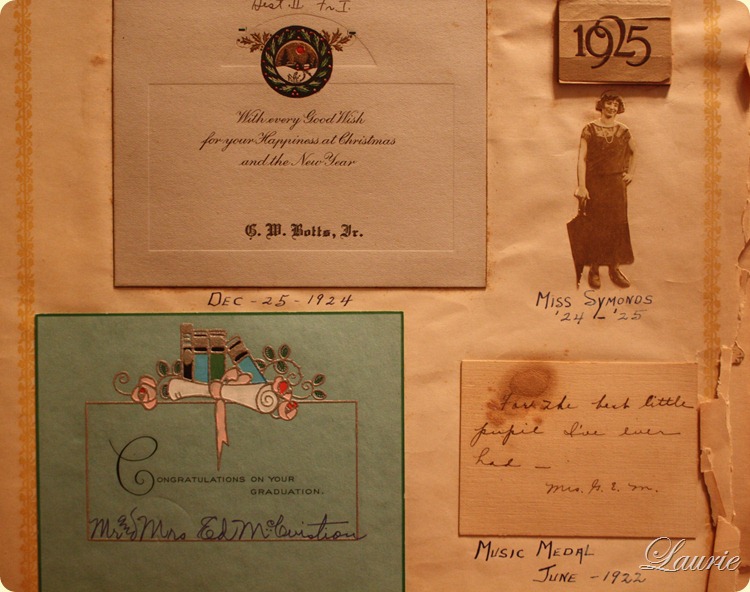 Dest. II Fr. I.
With every Good Wish
for your Happiness at Christmas
and the New Year
G. W. Botts, Jr.
DEC - 25 - 1924
1925
MISS SYMONDS
'24 - '25
CONGRATULATIONS ON YOUR
GRADUATION.
Mr and Mrs Ed McCuistion
For the best little
pupil I've ever
had —
Mrs. G. E. M.
MUSIC MEDAL
JUNE - 1922
Laurie